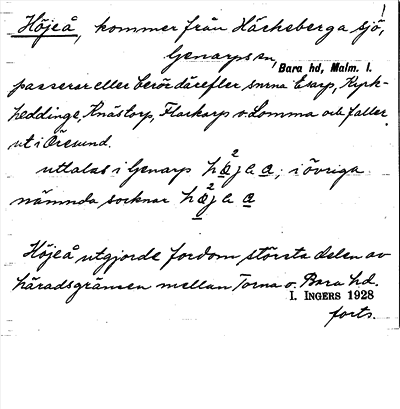 Höjeå, kommer från Häckeberga sjö,
Genarps sn,
Bara hd, Malm. l.
passerar eller berör därefter snrna Esarp, Kyrk-
heddinge, Knästorp, Flackarp o. Lomma och faller
ut i Öresund.
uttalas i Genarp høja a; i övriga
nämnda socknar høja a
Höjeå utgjorde fordom största delen av
häradsgränsen mellan Torna o. Bara hd.
I. INGERS 1928
forts.